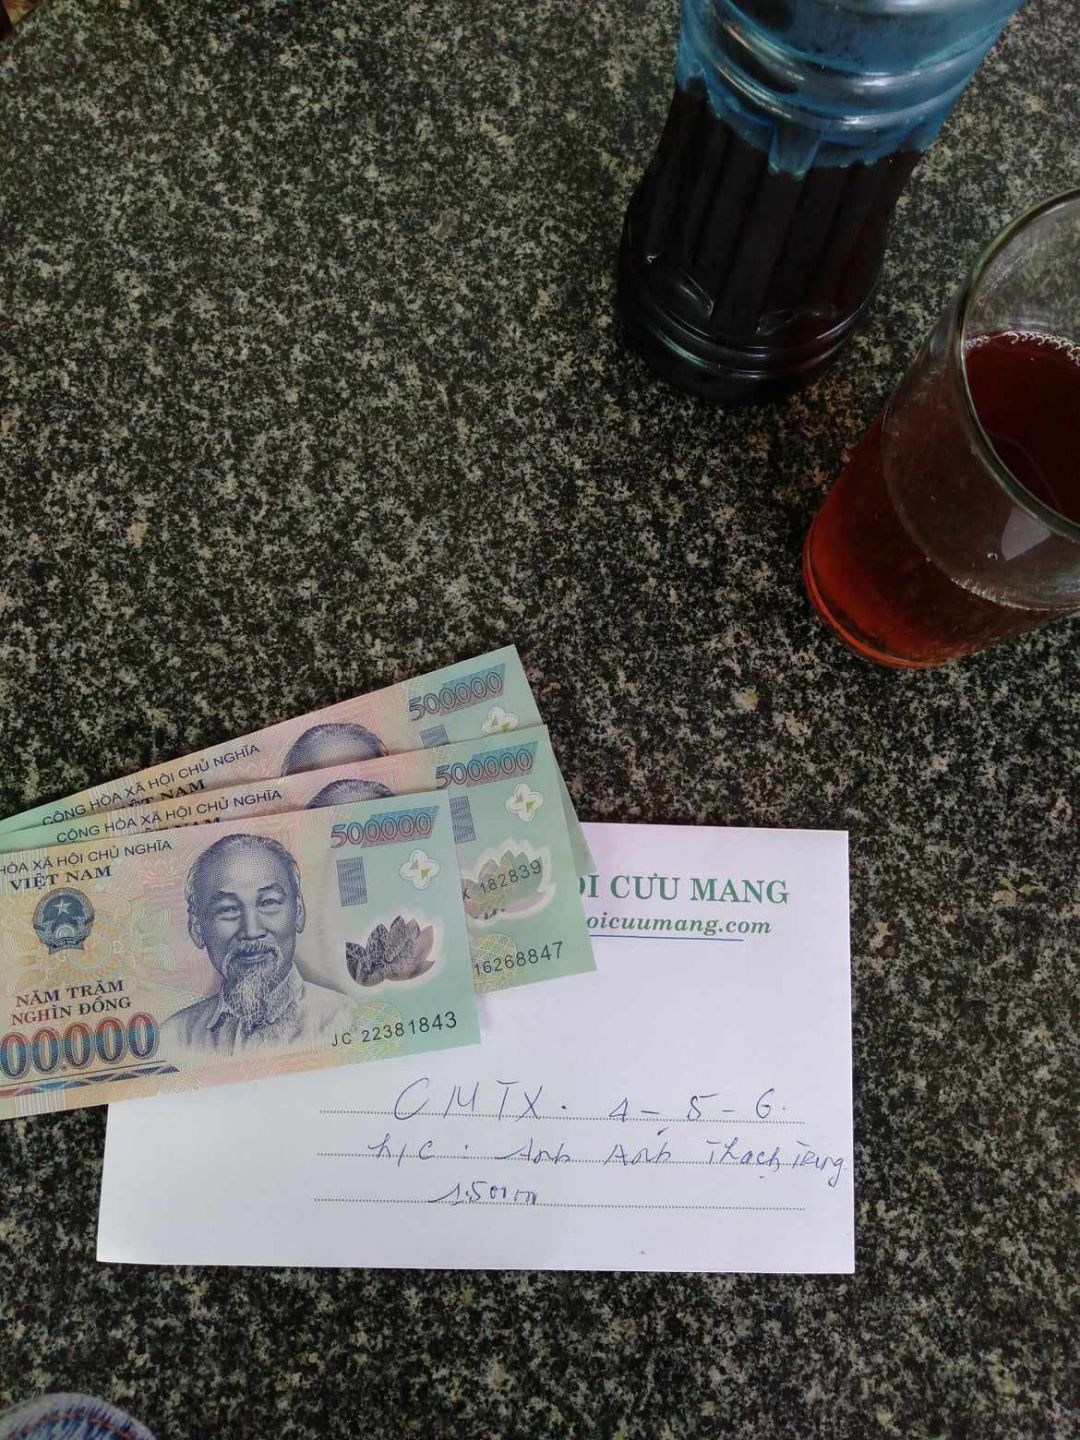 500000
CỘNG HÒA XÃ HỘI CHỦ NGHĨA
VIỆT NAM
500000
CỘNG HÒA XÃ HỘI CHỦ NGHĨA
VIỆT NAM
182839
16268847
HÒA XÃ HỘI CHỦ NGHĨA
VIỆT NAM
500000
NĂM TRĂM
NGHÌN ĐỒNG
00000
JC 22381843
ỜI CƯU MANG
oicuumang.com
CMTX. 4-5-6.
h/c: Anh Ánh Thạch